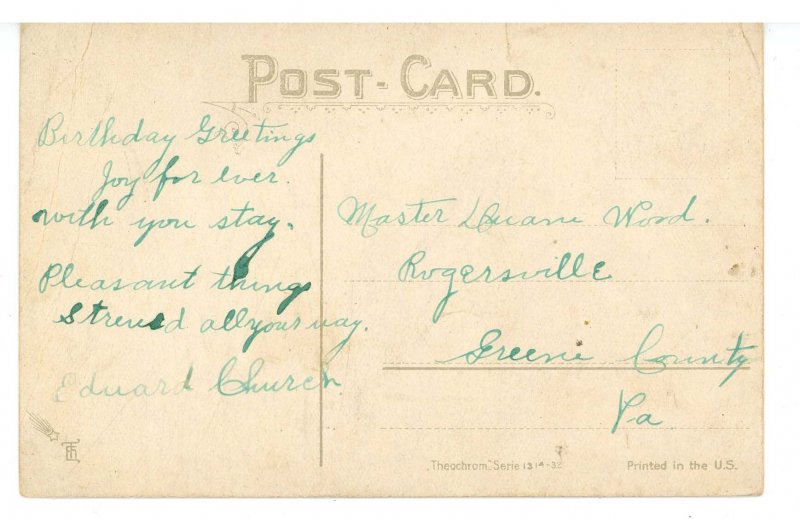 POST-CARD.
Birthday Greetings
Joy for ever.
with you stay.
Pleasant things
Strewed all your way.
Edward Church
Master Duane Wood.
Rogersville
Greene County
Pa
"Theochrom." Serie 1314-32
Printed in the U.S.